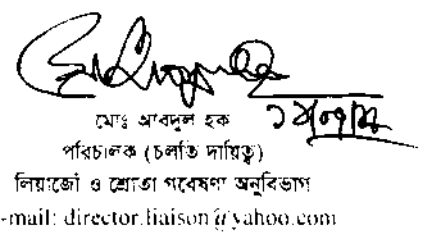 মোঃ আবদুল হক
পরিচালক (চলতি দায়িত্ব)
লিয়াজোঁ ও শ্রোতা গবেষণা অনুবিভাগ
-mail: director.liaison@yahoo.com